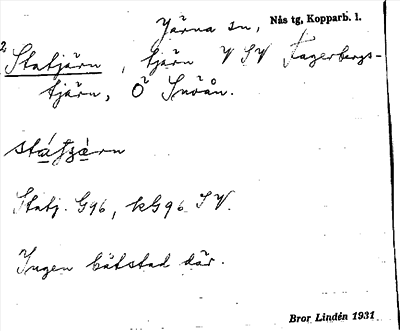 Järna sn, Nås tg, Kopparb. l.
2 Statjärn, tjärn V SV Fagerbergs-
tjärn, Ö Snöån.
Statj. G96, kG96 SV.
Ingen båtstad där.
Bror Lindén 1931